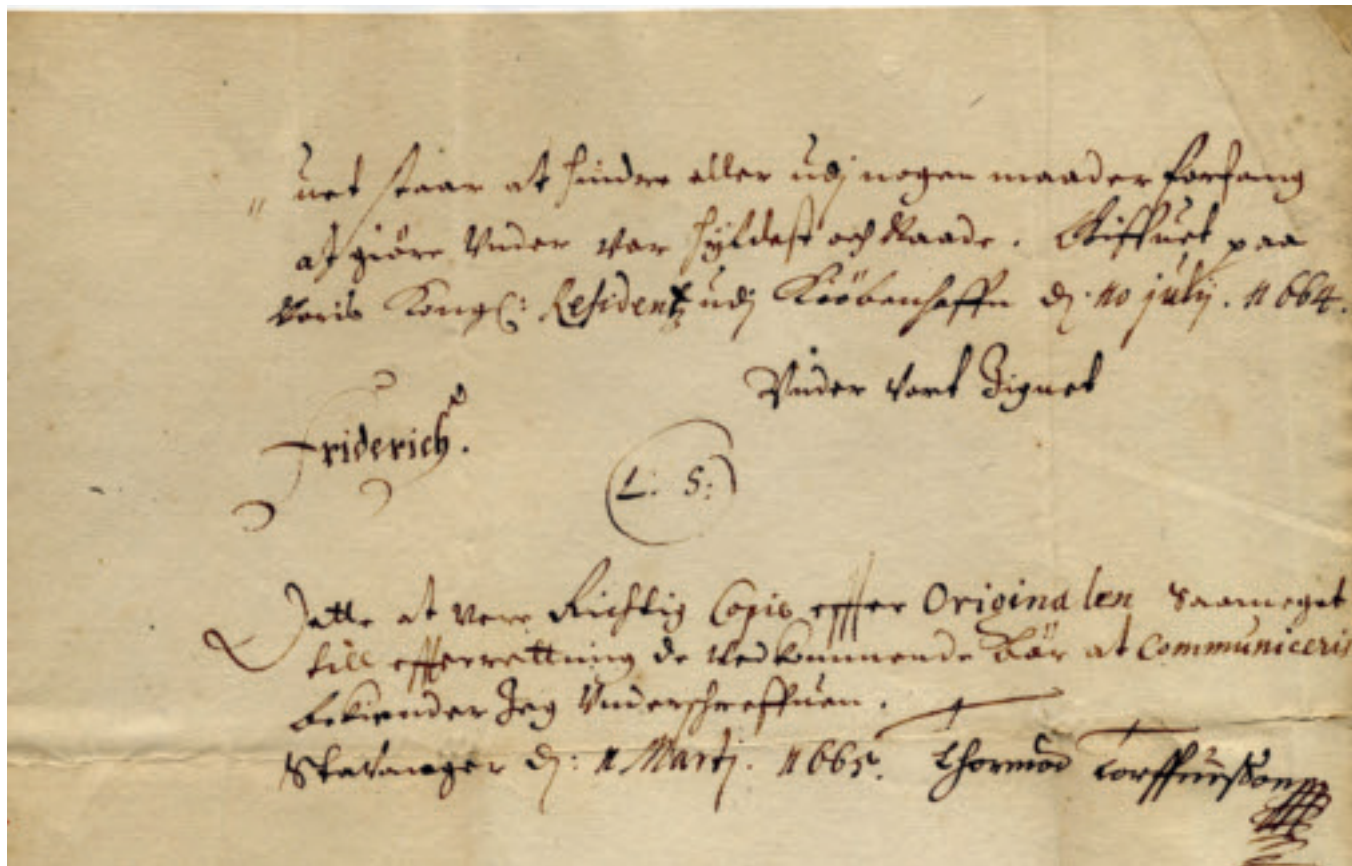 uet staar at hindre eller udj nogen maader forfang
at giöre Vnder vor hyldest och Naade. Skiffuet paa
Voris Kongl: Residentz udj Kiöbenhaffn dj. 10 julij. 1664.
Vnder Vort Zignet
Friderich.
L: S:
Dette at vere Richtig Copie effter Originalen Saameget
till effterrettning de vedkommende bör at Communiceris
bekiender Jeg Vnderschreffuen.
Stavanger dj: 1 Martj. 1665. Thormod Torffuesson